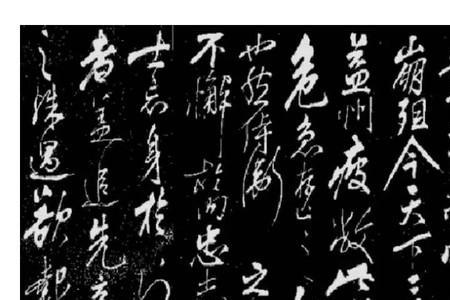 崩殂今天下三
益州疲敝此
危急存亡之
也然侍衛之
不懈於内忠志
士忘身於外
者蓋追先帝
之殊遇欲報